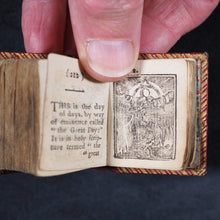 THIS is the day
of days, by way
of eminence called
"the Great Day:"
It is in holy Scrip-
ture termed "the
great